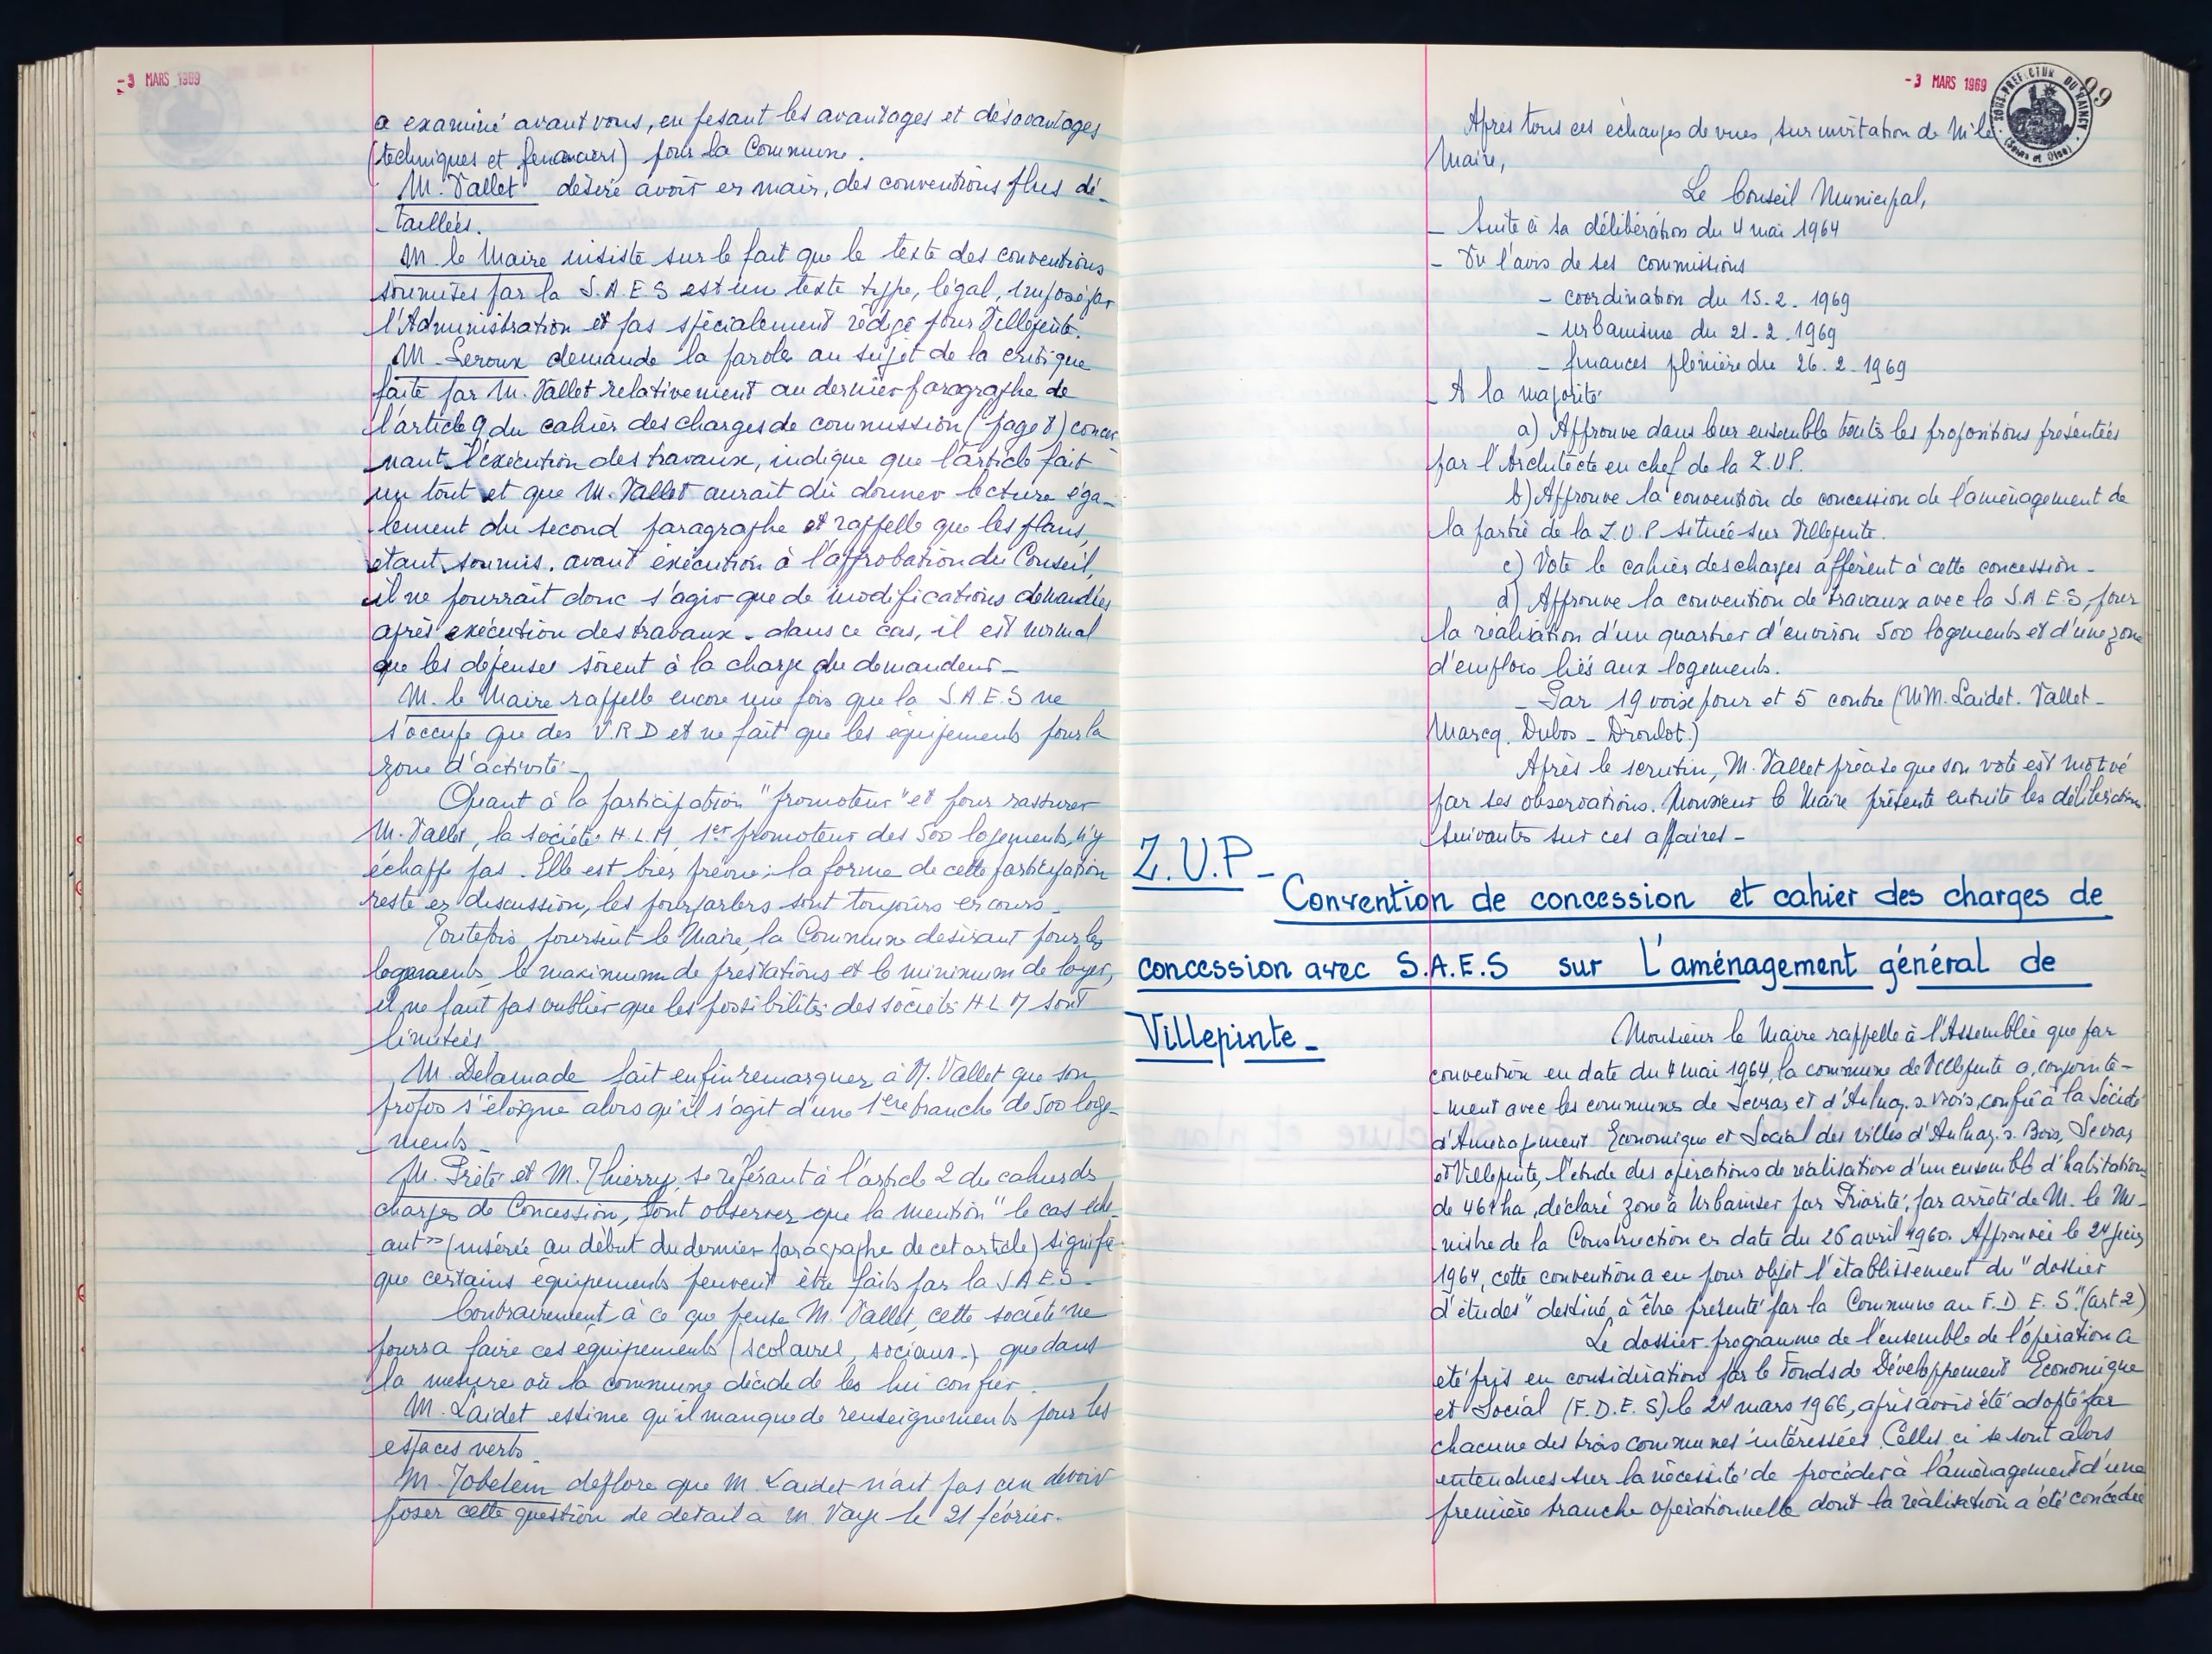 -3 MARS 1969
a examiné avant vous, en pesant les avantages et désavantages
(techniques et financiers) pour la Commune.
M. Vallet désire avoir en main, des conventions plus dé-
-taillées.
M. le Maire insiste sur le fait que le texte des conventions
soumises par la S.A.E.S est un texte type, légal, imposé par
l'Administration et pas spécialement rédigé pour Villepinte.
M. Leroux demande la parole au sujet de la critique
faite par M. Vallet relativement au dernier paragraphe de
l'article 9 du cahier des charges de commission (page 8) concer-
nant l'exécution des travaux, indique que l'article fait
un tout et que M. Vallet aurait dû donner lecture éga-
lement du second paragraphe et rappelle que les plans,
étant soumis, avant exécution à l'approbation du Conseil,
il ne pourrait donc s'agir que de modifications demandées
après exécution des travaux. dans ce cas, il est normal
que les dépenses soient à la charge du demandeur_
M. le Maire rappelle encore une fois que la S.A.E.S ne
s'occupe que des V.R.D et ne fait que les équipements pour la
zone d'activité_
Quant à la participation "promoteur" et pour rassurer
M. Vallet, la société H.L.M, 1er promoteur des 500 logements, n'y
échappe pas. Elle est bien prévue; la forme de cette participation
reste en discussion, les pourparlers sont toujours en cours_
Toutefois poursuit le Maire, la Commune désirant pour les
logements, le maximum de prestations et le minimum de loyer,
il ne faut pas oublier que les possibilités des sociétés H.L.M sont
limitées.
M. Delamade fait enfin remarquer à M. Vallet que son
propos s'éloigne alors qu'il s'agit d'une 1ère tranche de 500 loge-
ments_
M. Prêté et M. Thierry, se référant à l'article 2 du cahier des
charges de Concession, font observer que la mention "le cas éché-
ant" (insérée au début du dernier paragraphe de cet article) signifie
que certains équipements peuvent être faits par la S.A.E.S_
Contrairement à ce que pense M. Vallet, cette société ne
pourra faire ces équipements (scolaires, sociaux.) que dans
la mesure où la commune décide de les lui confier.
M. Laidet estime qu'il manque de renseignements pour les
espaces verts_
M. Jobelein déplore que M. Laidet n'ait pas cru devoir
poser cette question de détail à M. Vaye le 21 février.
-3 MARS 1969
SOUS-PREFECTURE DU RAINCY
(Seine et Oise)
99
Après tous ces échanges de vues, sur invitation de M. le
Maire,
Le Conseil Municipal,
- Suite à sa délibération du 4 mai 1964
- Vu l'avis de ses commissions
- coordination du 15.2.1969
- urbanisme du 21.2.1969
- finances plénière du 26.2.1969
- A la majorité
a) Approuve dans leur ensemble toutes les propositions présentées
par l'Architecte en chef de la Z.U.P.
b) Approuve la convention de concession de l'aménagement de
la partie de la Z.U.P située sur Villepinte.
c) Vote le cahier des charges afférent à cette concession_
d) Approuve la convention de travaux avec la S.A.E.S, pour
la réalisation d'un quartier d'environ 500 logements et d'une zone
d'emplois liés aux logements.
_ Par 19 voix pour et 5 contre (MM. Laidet. Vallet_
Marcq. Dubos_Droulot.)
Après le scrutin, M. Vallet précise que son vote est motivé
par ses observations. Monsieur le Maire présente ensuite les délibérations
suivantes sur ces affaires_
Z.U.P_
Convention de concession et cahier des charges de
concession avec S.A.E.S sur L'aménagement général de
Villepinte_
Monsieur le Maire rappelle à l'Assemblée que par
convention en date du 4 mai 1964, la commune de Villepinte a, conjointe-
-ment avec les communes de Sevran et d'Aulnay.s.Bois, confié à la Société
d'Aménagement Economique et Social des villes d'Aulnay.s.Bois, Sevran
et Villepinte, l'étude des opérations de réalisation d'un ensemble d'habitation
de 464 ha, déclaré zone à Urbaniser par Priorité, par arrêté de M. le Mi-
-nistre de la Construction en date du 26 avril 1960. Approuvée le 24 juin
1964, cette convention a eu pour objet l'établissement du "dossier
d'études" destiné à être présenté par la Commune au F.D.E.S." (art 2)
Le dossier-programme de l'ensemble de l'opération a
été pris en considération par le Fonds de Développement Economique
et Social (F.D.E.S) le 24 mars 1966, après avoir été adopté par
chacune des trois communes intéressées. Celles.ci se sont alors
entendues sur la nécessité de procéder à l'aménagement d'une
première tranche opérationnelle dont la réalisation a été concédée